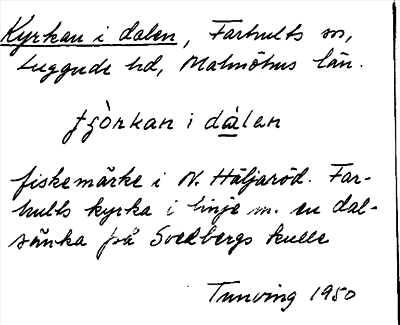 Kyrkan i dalen, Farhults sn,
Luggude hd, Malmöhus län.
tjòrkan i dàlen
fiskemärke i N. Häljaröd. Far-
hults kyrka i linje m. en dal-
sänka på Svedbergs kulle
Tunving 1950